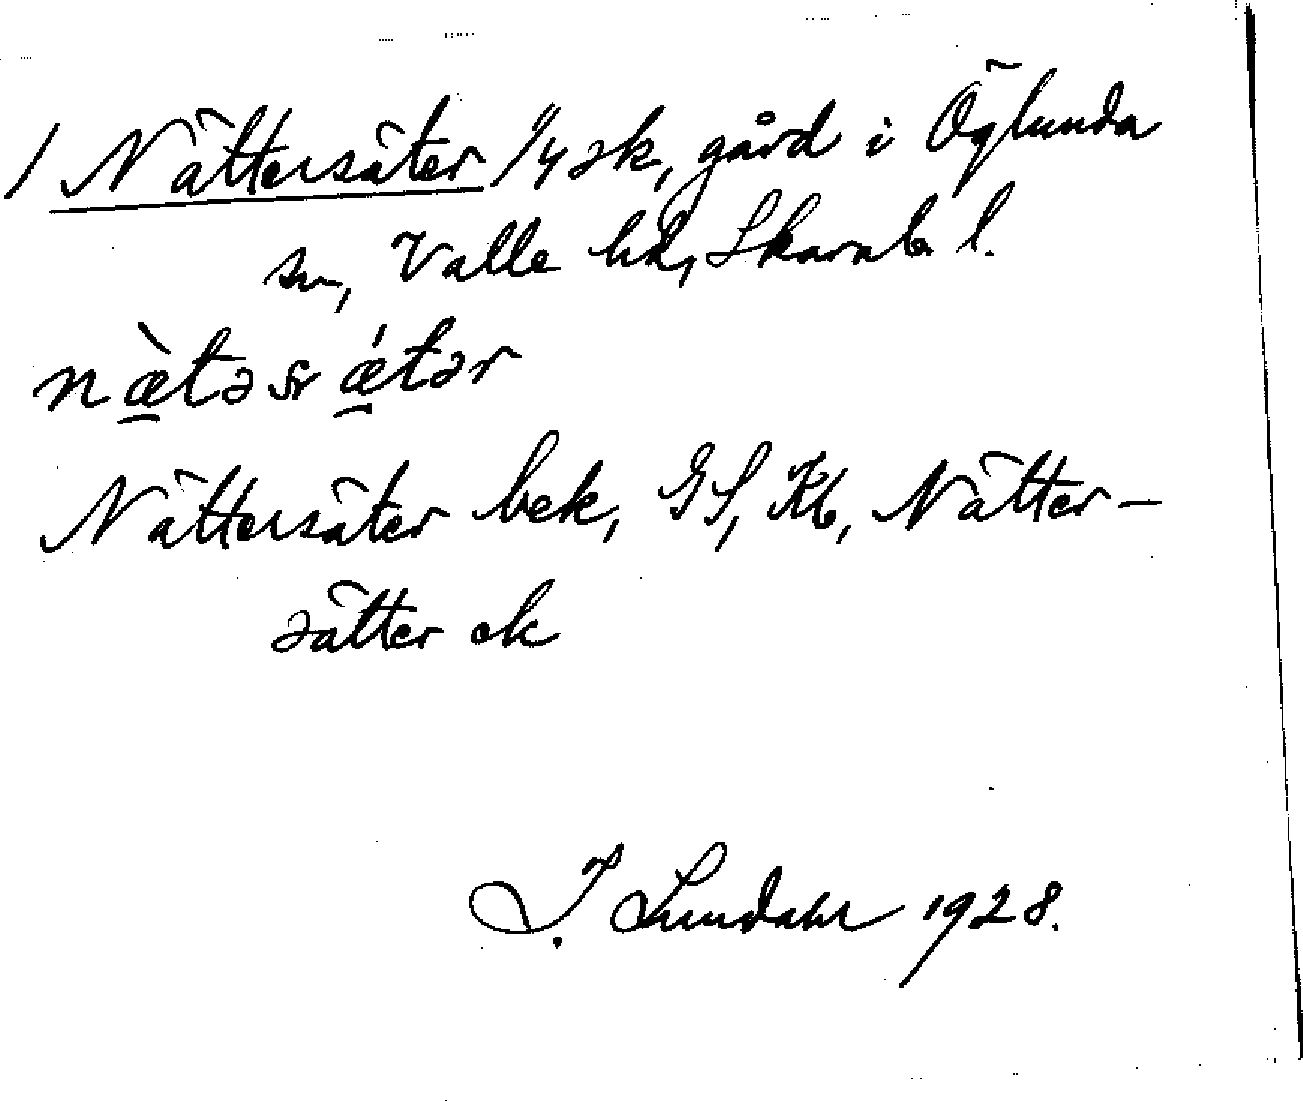 / Nättersäter 1/4 sk, gård i Öglunda
sn, Valle hd, Skarab. l.
næ̀təsǽtər
Nättersäter bek, GS, Kb, Nätter-
sätter ek
I. Lundahl 1928.